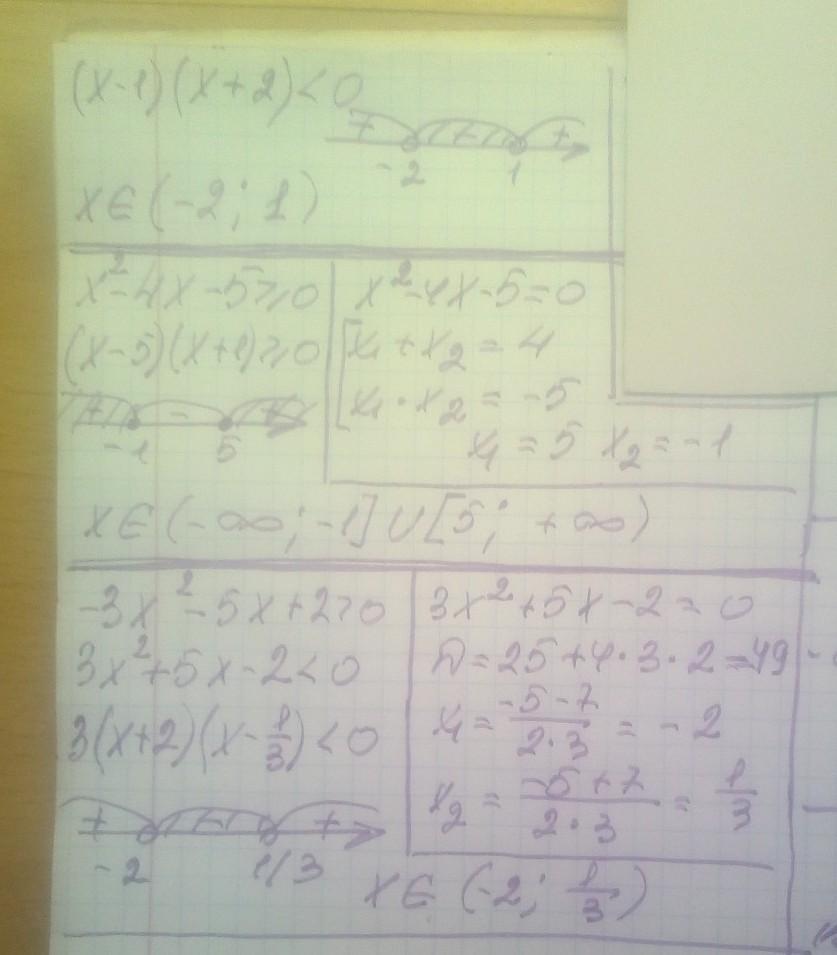 (x-1)(x+2)<0
+ - +
-2 1
x∈(-2; 1)
x²-4x-5≥0
(x-5)(x+1)≥0
+ - +
-1 5
x²-4x-5=0
x₁+x₂=4
x₁·x₂=-5
x₁=5 x₂=-1
x∈(-∞; -1]∪[5; +∞)
-3x²-5x+2>0
3x²+5x-2<0
3(x+2)(x-1/3)<0
+ - +
-2 1/3
3x²+5x-2=0
D=25+4·3·2=49
x₁=(-5-7)/(2·3)=-2
x₂=(-5+7)/(2·3)=1/3
x∈(-2; 1/3)